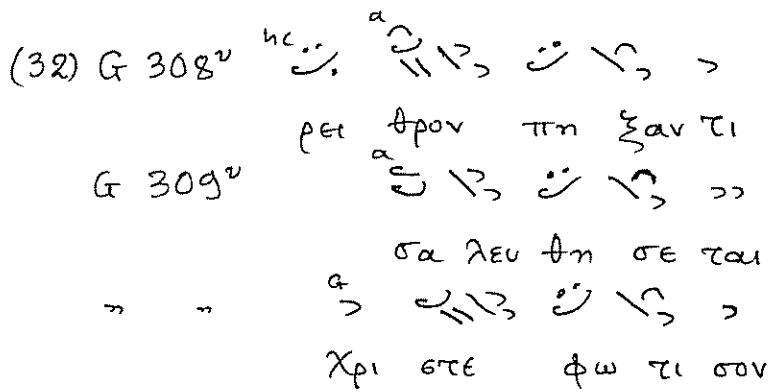 (32) G 308ᵛ
ρει θρον πη ξαν τι
G 309ᵛ
σα λευ θη σε ται
" "
Χρι στε φω τι σον